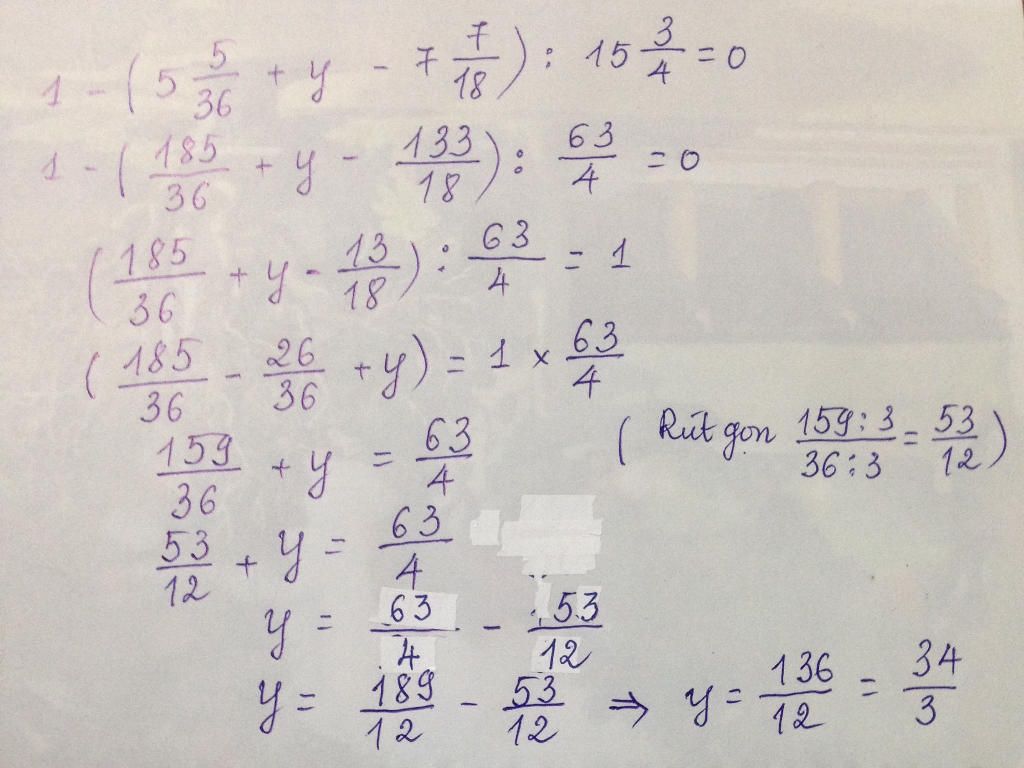 1 - (5 5/36 + y - 7 7/18) : 15 3/4 = 0
1 - (185/36 + y - 133/18) : 63/4 = 0
(185/36 + y - 13/18) : 63/4 = 1
(185/36 - 26/36 + y) = 1 × 63/4
159/36 + y = 63/4 (Rút gọn 159:3/36:3 = 53/12)
53/12 + y = 63/4
y = 63/4 - 53/12
y = 189/12 - 53/12 ⇒ y = 136/12 = 34/3